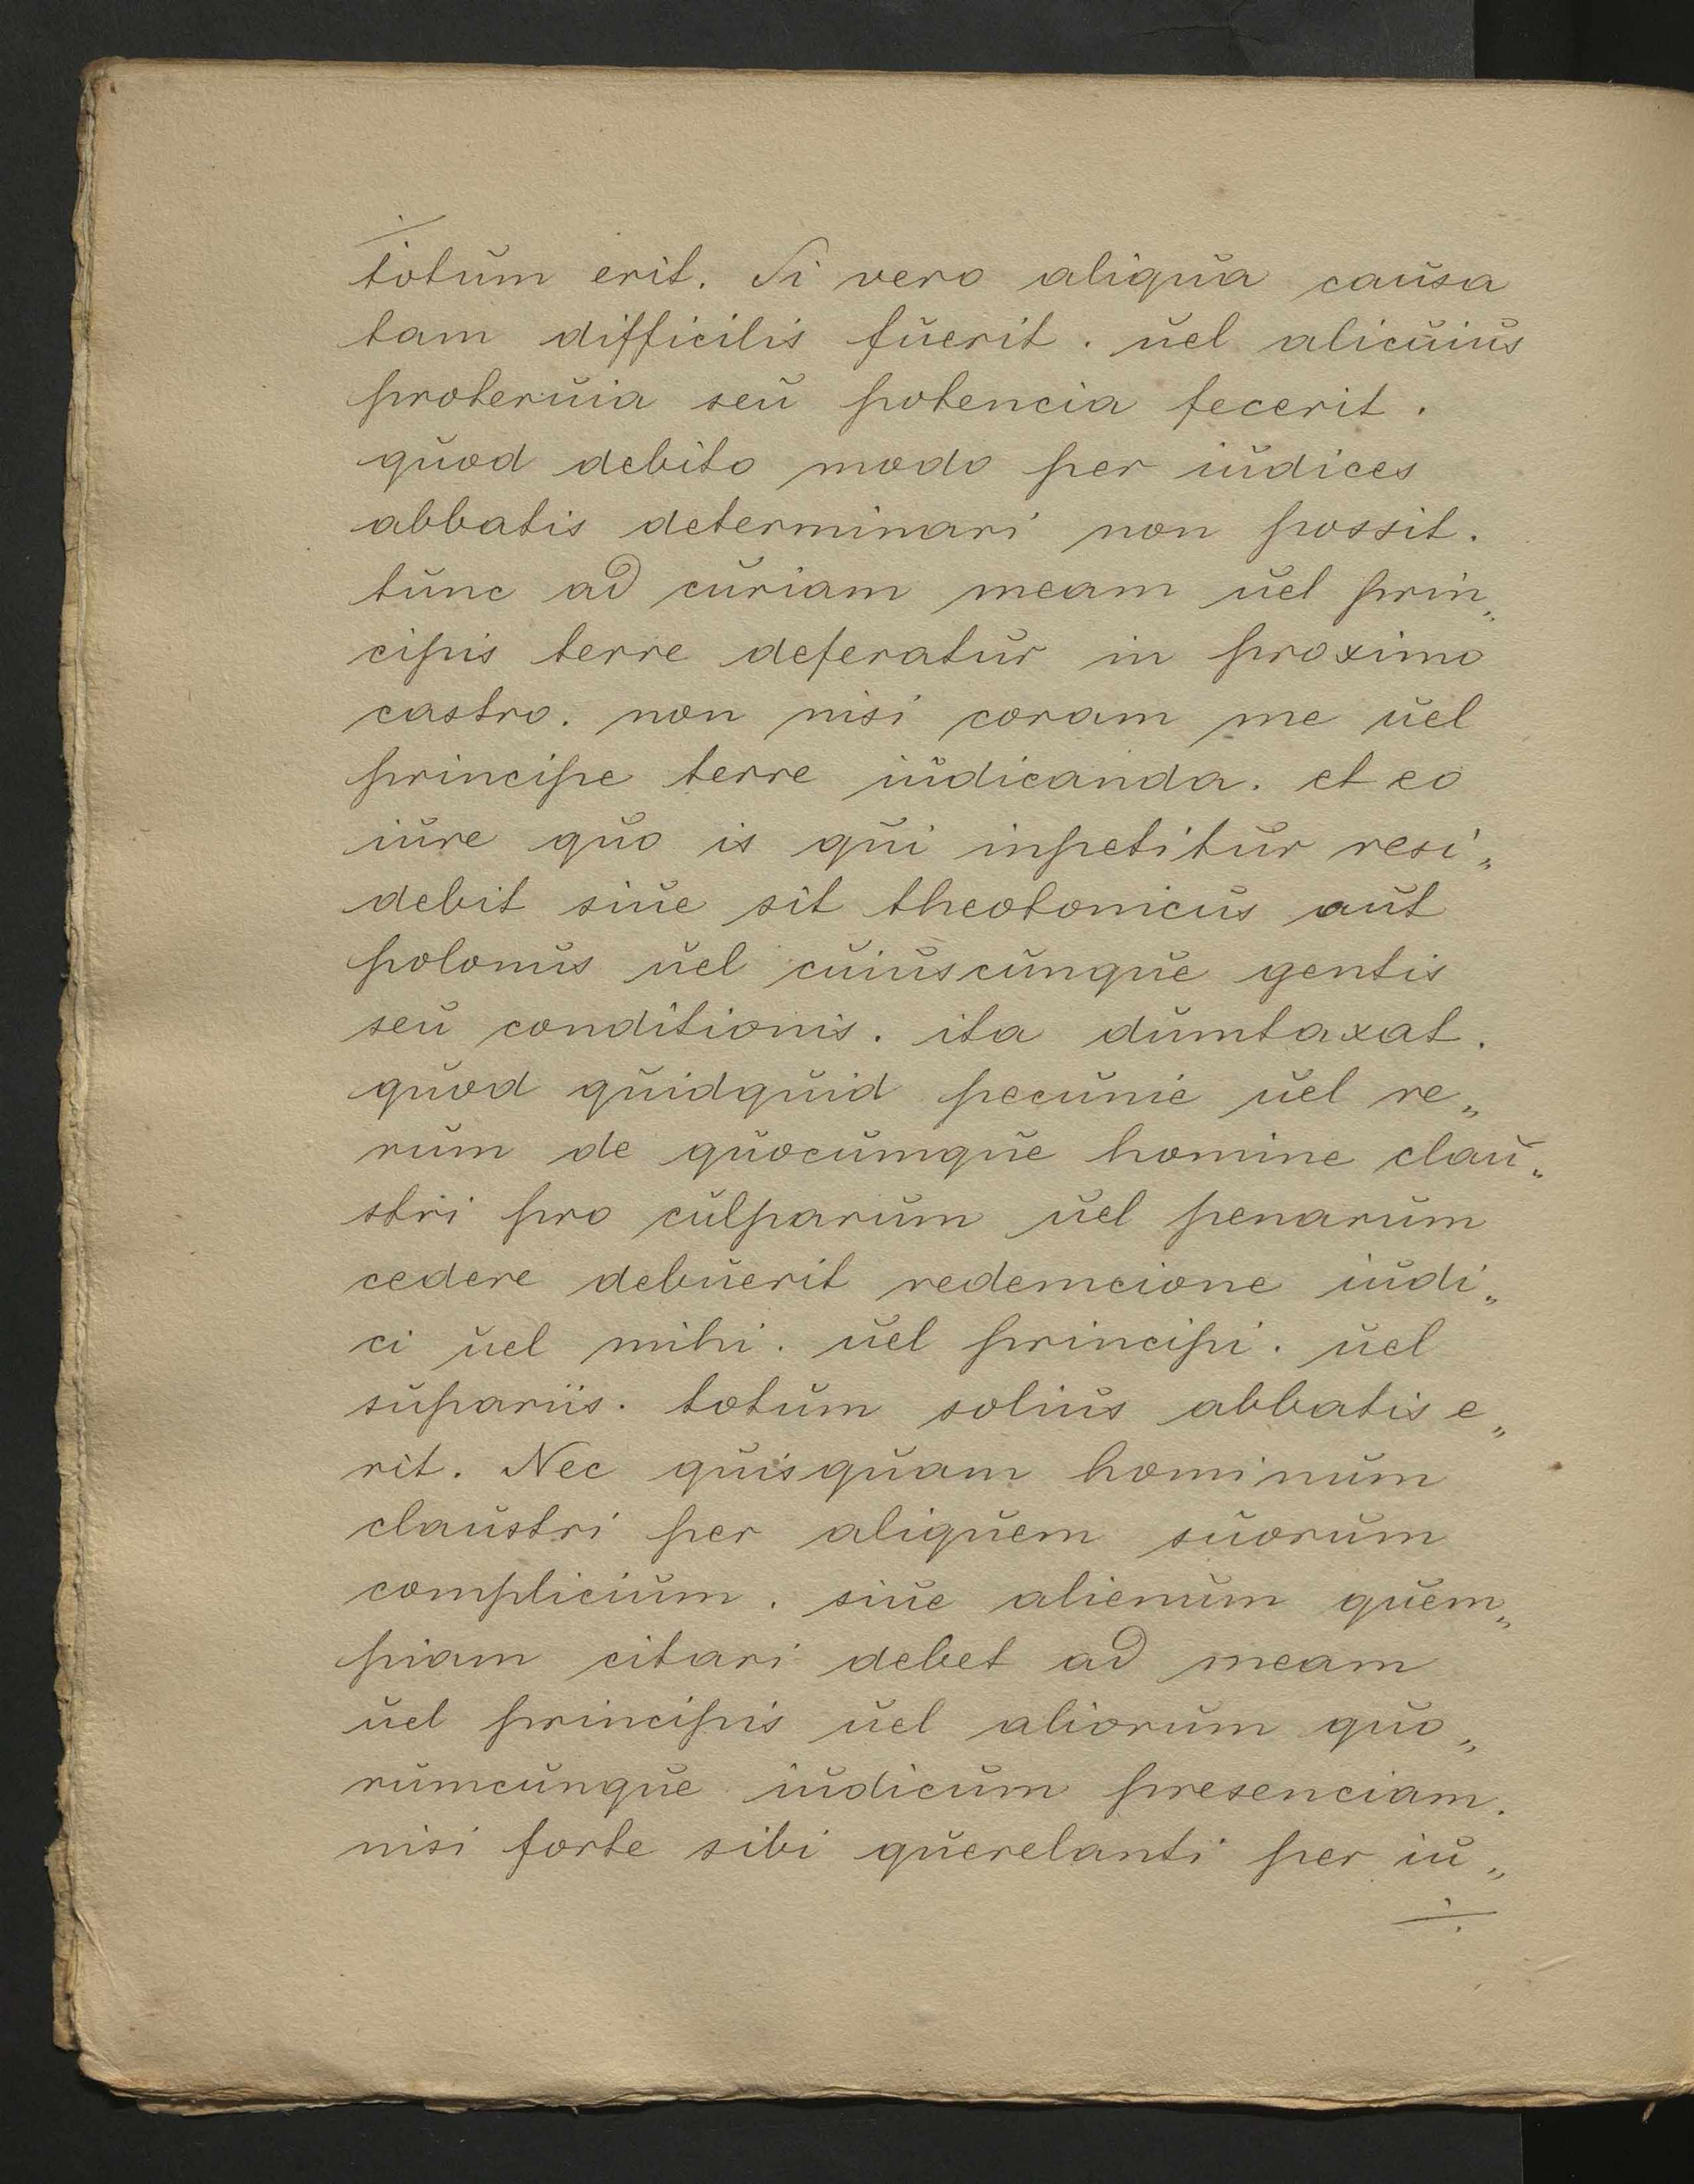 totum erit. Si vero aliqua causa
tam difficilis fuerit. uel alicuius
proteruia seu potencia fecerit.
quod debito modo per iudices
abbatis determinari non possit.
tunc ad curiam meam uel prin„
cipis terre deferatur in proximo
castro. non nisi coram me uel
principe terre iudicanda. et eo
iure quo is qui inpetitur resi„
debit siue sit theotonicus aut
polonus uel cuiuscunque gentis
seu conditionis. ita dumtaxat.
quod quidquid pecunie uel re„
rum de quocumque homine clau„
stri pro culparum uel penarum
cedere debuerit redemcione iudi„
ci uel mihi. uel principi. uel
supariis. totum solius abbatis e„
rit. Nec quisquam hominum
claustri per aliquem suorum
complicium. siue alienum quem„
piam citari debet ad meam
uel principis uel aliorum quo„
rumcunque iudicum presenciam.
nisi forte sibi querelanti per iu„